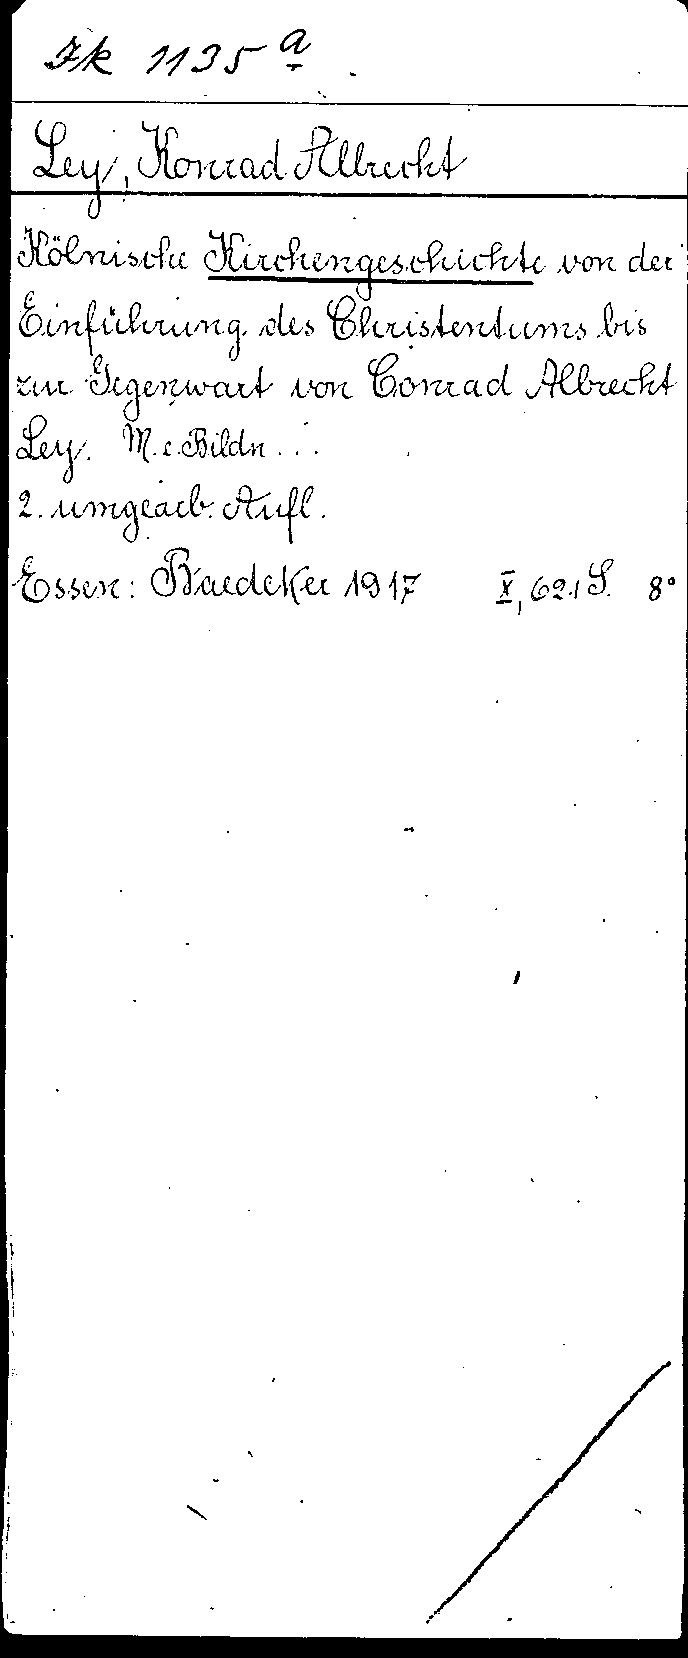 Zk 1135 a
Ley, Konrad Albrecht
Kölnische Kirchengeschichte von der
Einführung des Christentums bis
zur Gegenwart von Conrad Albrecht
Ley. M. e. Bildn ...
2. umgearb. Aufl.
Essen: Baedeker 1917 X, 621 S. 8°